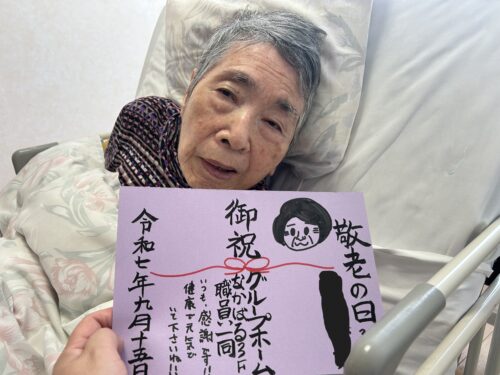 敬老の日。
御祝
グループホーム
なかばる3F
職員一同
いつも、感謝です!!
健康で元気で
いて下さいね!!
令和七年九月十五日